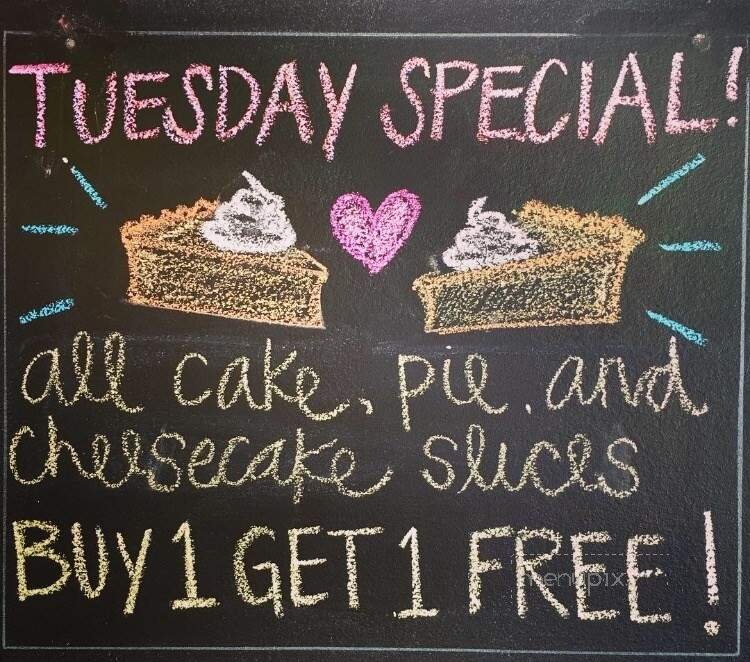 TUESDAY SPECIAL!
all cake, pie, and
cheesecake slices
BUY 1 GET 1 FREE!
menupix